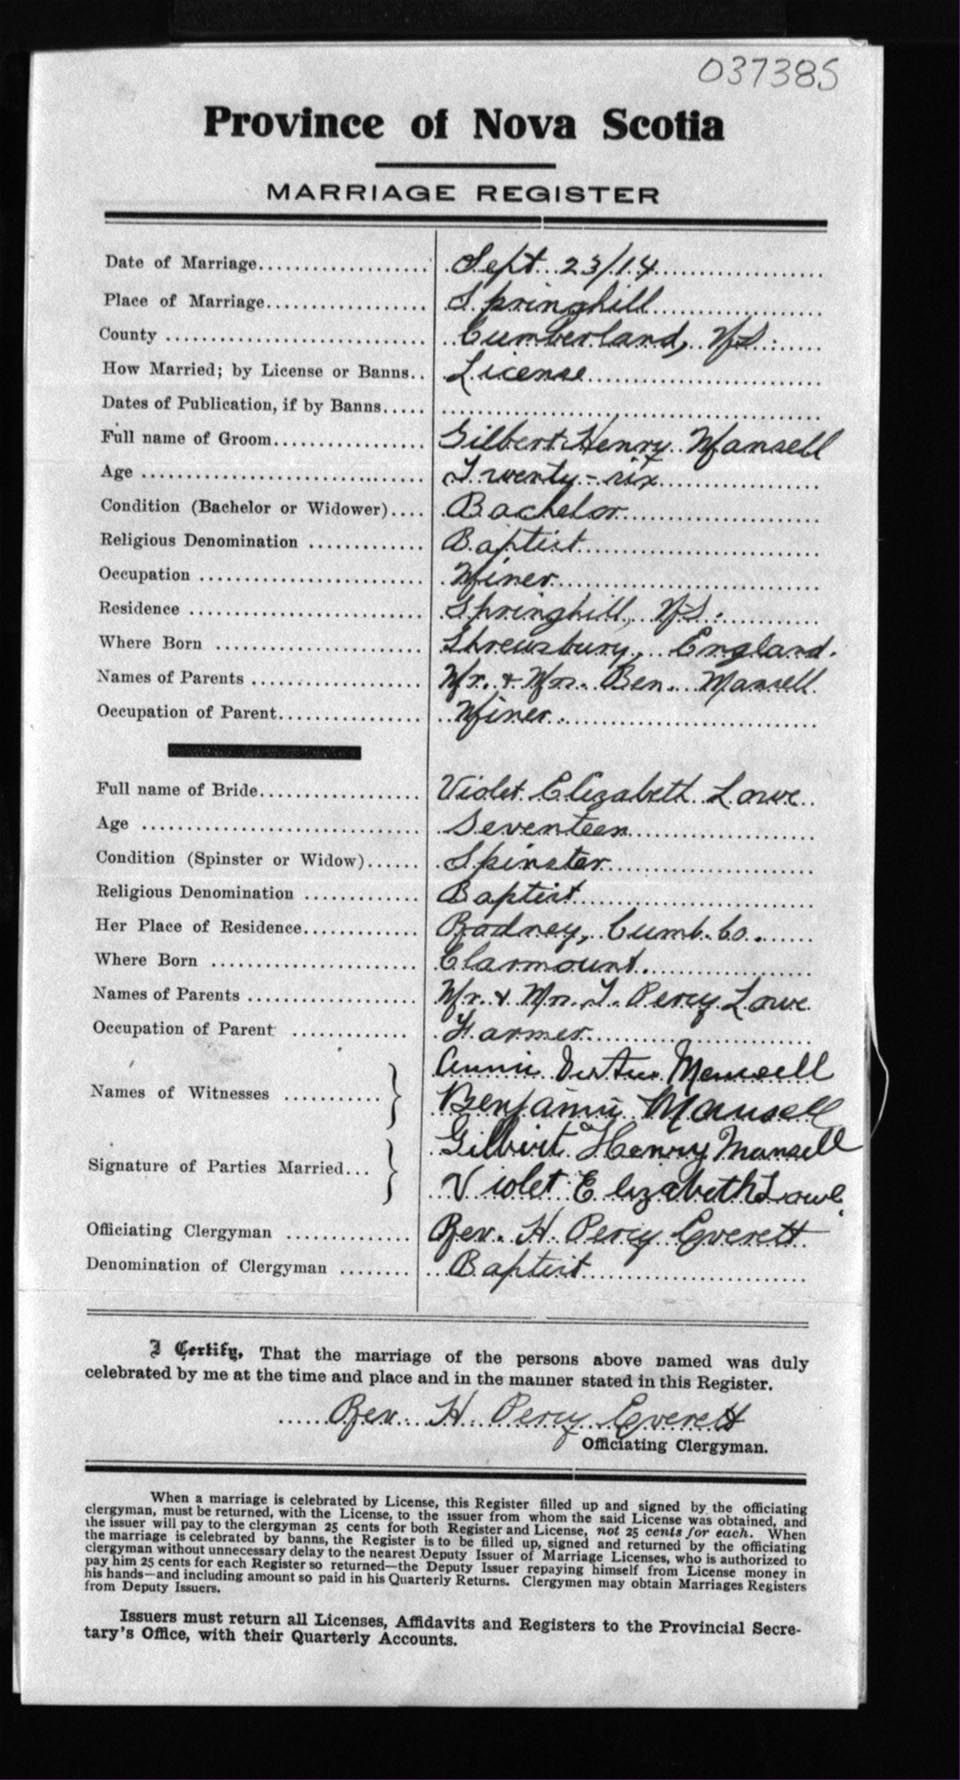 037385
Province of Nova Scotia
MARRIAGE REGISTER
Date of Marriage Sept 23/14
Place of Marriage Springhill
County Cumberland, NS.
How Married; by License or Banns License
Dates of Publication, if by Banns
Full name of Groom Gilbert Henry Mansell
Age Twenty-six
Condition (Bachelor or Widower) Bachelor
Religious Denomination Baptist
Occupation Miner
Residence Springhill, NS.
Where Born Shrewsbury, England.
Names of Parents Mr. & Mrs. Ben. Mansell
Occupation of Parent Miner
Full name of Bride Violet Elizabeth Lowe
Age Seventeen
Condition (Spinster or Widow) Spinster
Religious Denomination Baptist
Her Place of Residence Rodney, Cumb. Co.
Where Born Claremount.
Names of Parents Mr. & Mrs. T. Percy Lowe
Occupation of Parent Farmer
Annie Mansell
Names of Witnesses
Benjamin Mansell
Gilbert Henry Mansell
Signature of Parties Married
Violet Elizabeth Lowe
Officiating Clergyman Rev. H. Percy Everett
Denomination of Clergyman Baptist
I Certify, That the marriage of the persons above named was duly
celebrated by me at the time and place and in the manner stated in this Register.
Rev. H. Percy Everett
Officiating Clergyman.
When a marriage is celebrated by License, this Register filled up and signed by the officiating
clergyman, must be returned, with the License, to the issuer from whom the said License was obtained, and
the issuer will pay to the clergyman 25 cents for both Register and License, not 25 cents for each. When
the marriage is celebrated by banns, the Register is to be filled up, signed and returned by the officiating
clergyman without unnecessary delay to the nearest Deputy Issuer of Marriage Licenses, who is authorized to
pay him 25 cents for each Register so returned—the Deputy Issuer repaying himself from License money in
his hands—and including amount so paid in his Quarterly Returns. Clergymen may obtain Marriages Registers
from Deputy Issuers.
Issuers must return all Licenses, Affidavits and Registers to the Provincial Secre-
tary's Office, with their Quarterly Accounts.